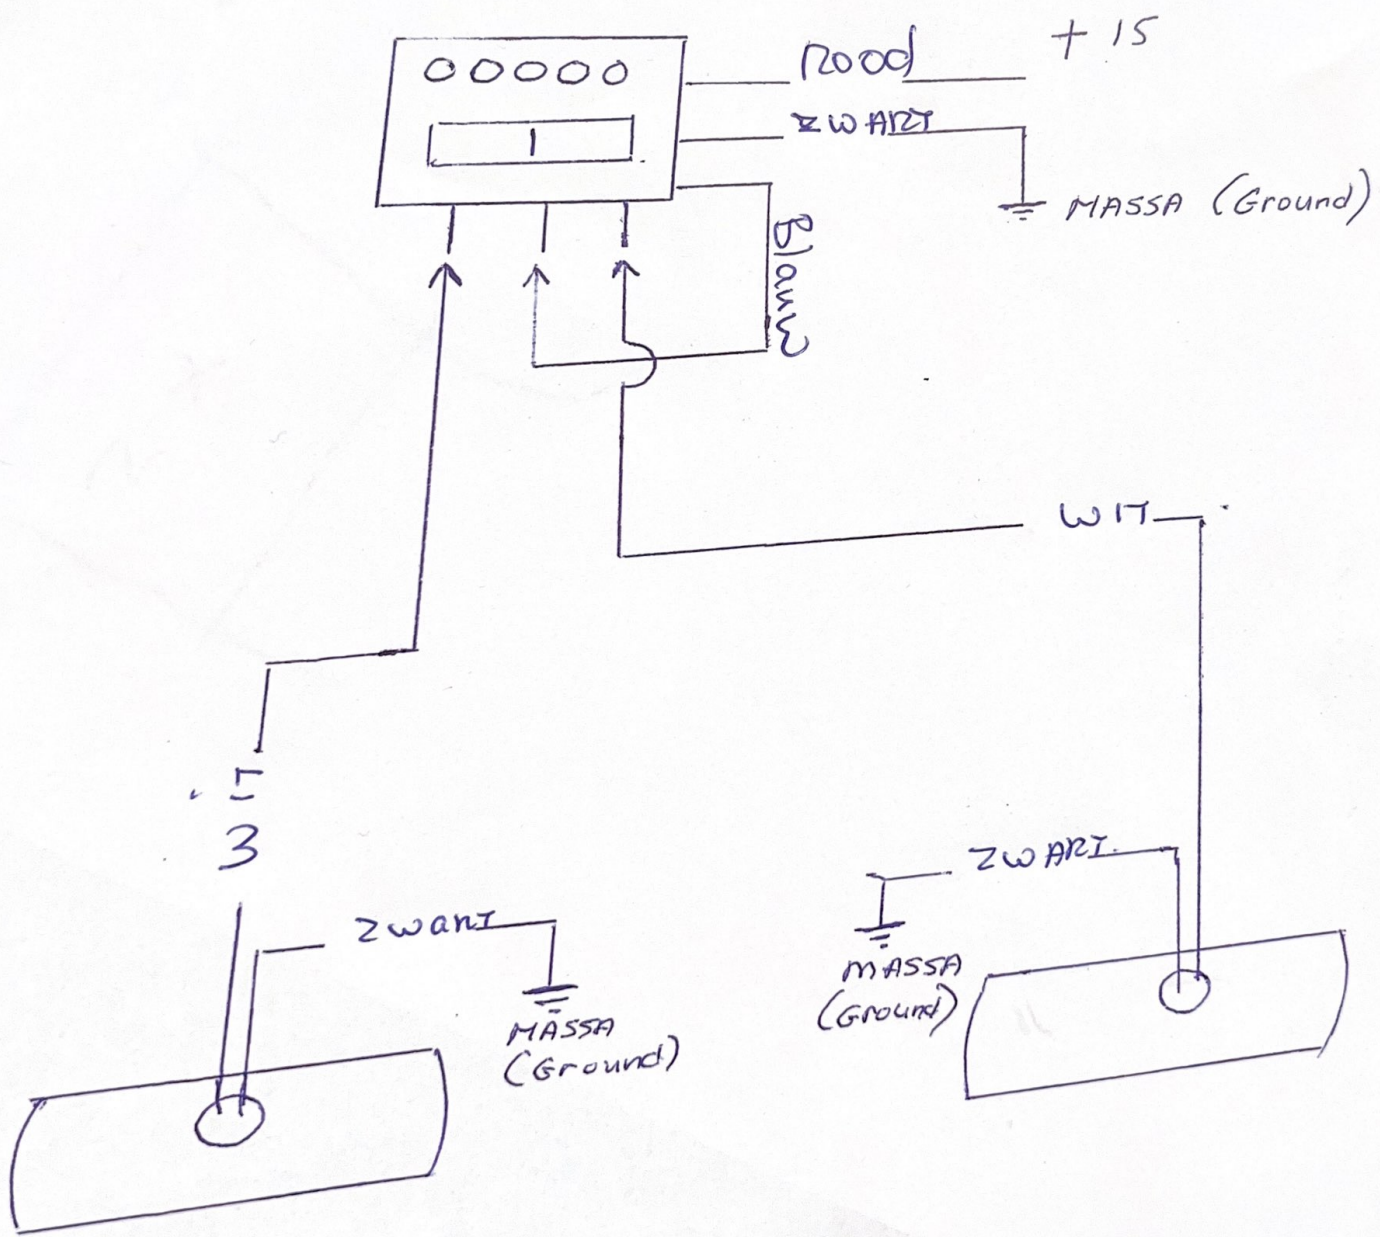 Rood
+ 15
ZWART
MASSA (Ground)
Blauw
WIT
WIT
ZWART
MASSA
(Ground)
ZWART
MASSA
(Ground)